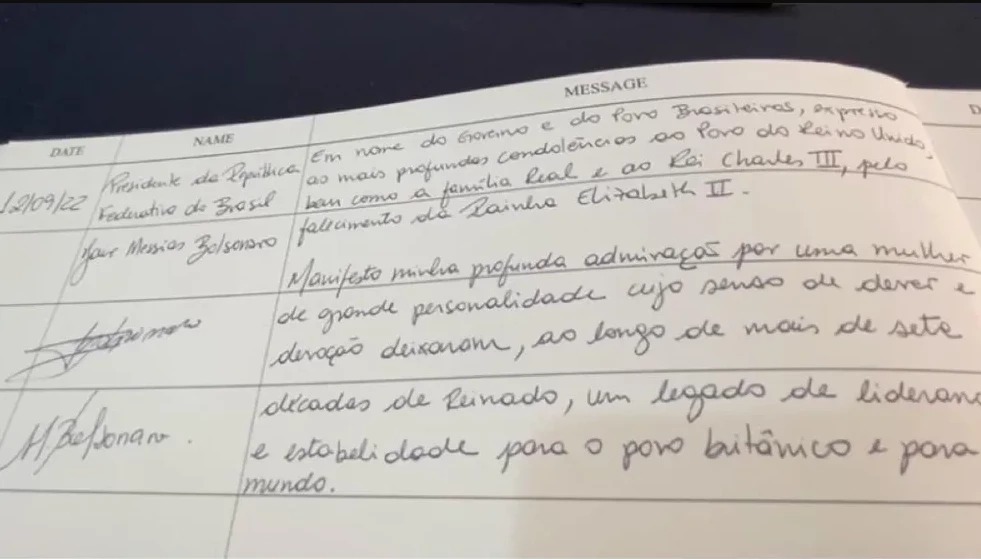 DATE
NAME
MESSAGE
D
12/09/22
Presidente da República
Federativa do Brasil
Jair Messias Bolsonaro
M Bolsonaro.
Em nome do Governo e do Povo Brasileiros, expresso
as mais profundas condolências ao Povo do Reino Unido,
bem como a família Real e ao Rei Charles III, pelo
falecimento da Rainha Elizabeth II.
Manifesto minha profunda admiração por uma mulher
de grande personalidade cujo senso de dever e
devoção deixaram, ao longo de mais de sete
décadas de Reinado, um legado de lideran
e estabelidade para o povo britânico e para
mundo.